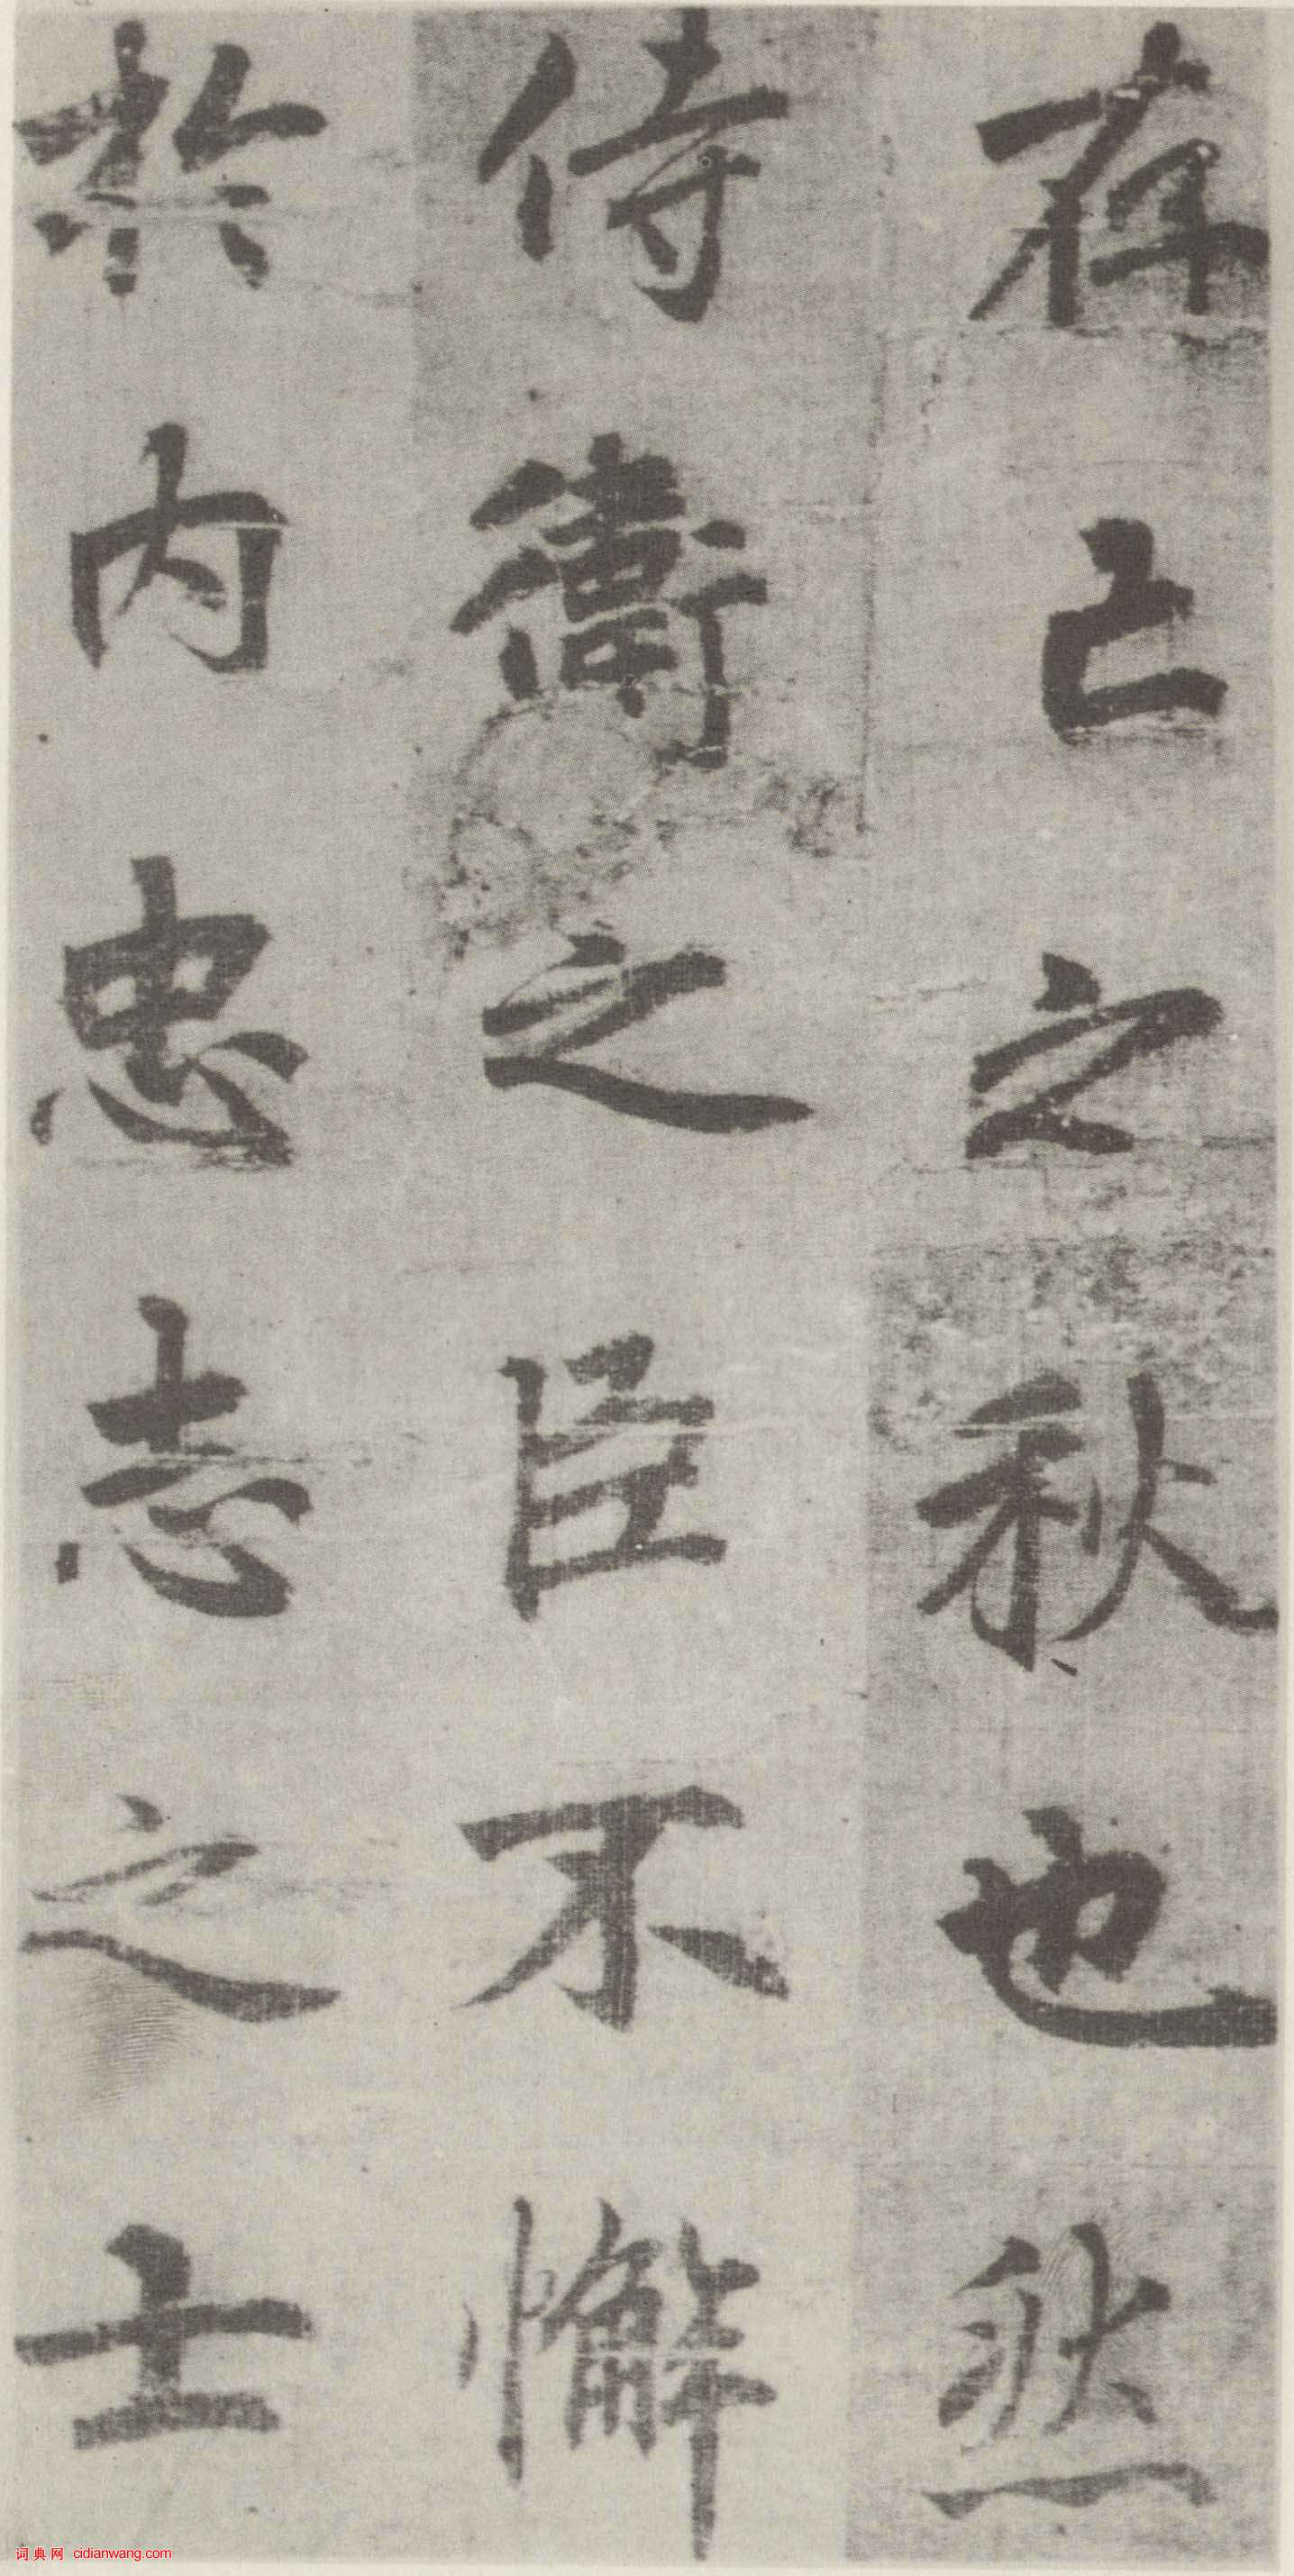 存亡之秋也然
侍衛之臣不懈
於内忠志之士
词典网 cidianwang.com